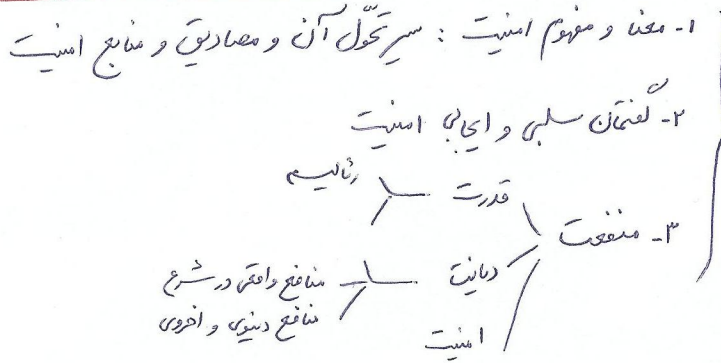 ۱- معنا و مفهوم امنیت : سیر تحوّل آن و مصادیق و منابع امنیت
۲- گفتمان سلبی و ایجابی امنیت
۳- منفعت
قدرت
رئالیسم
دیانت
منافع واقعی در شرع
منافع دنیوی و اخروی
امنیت